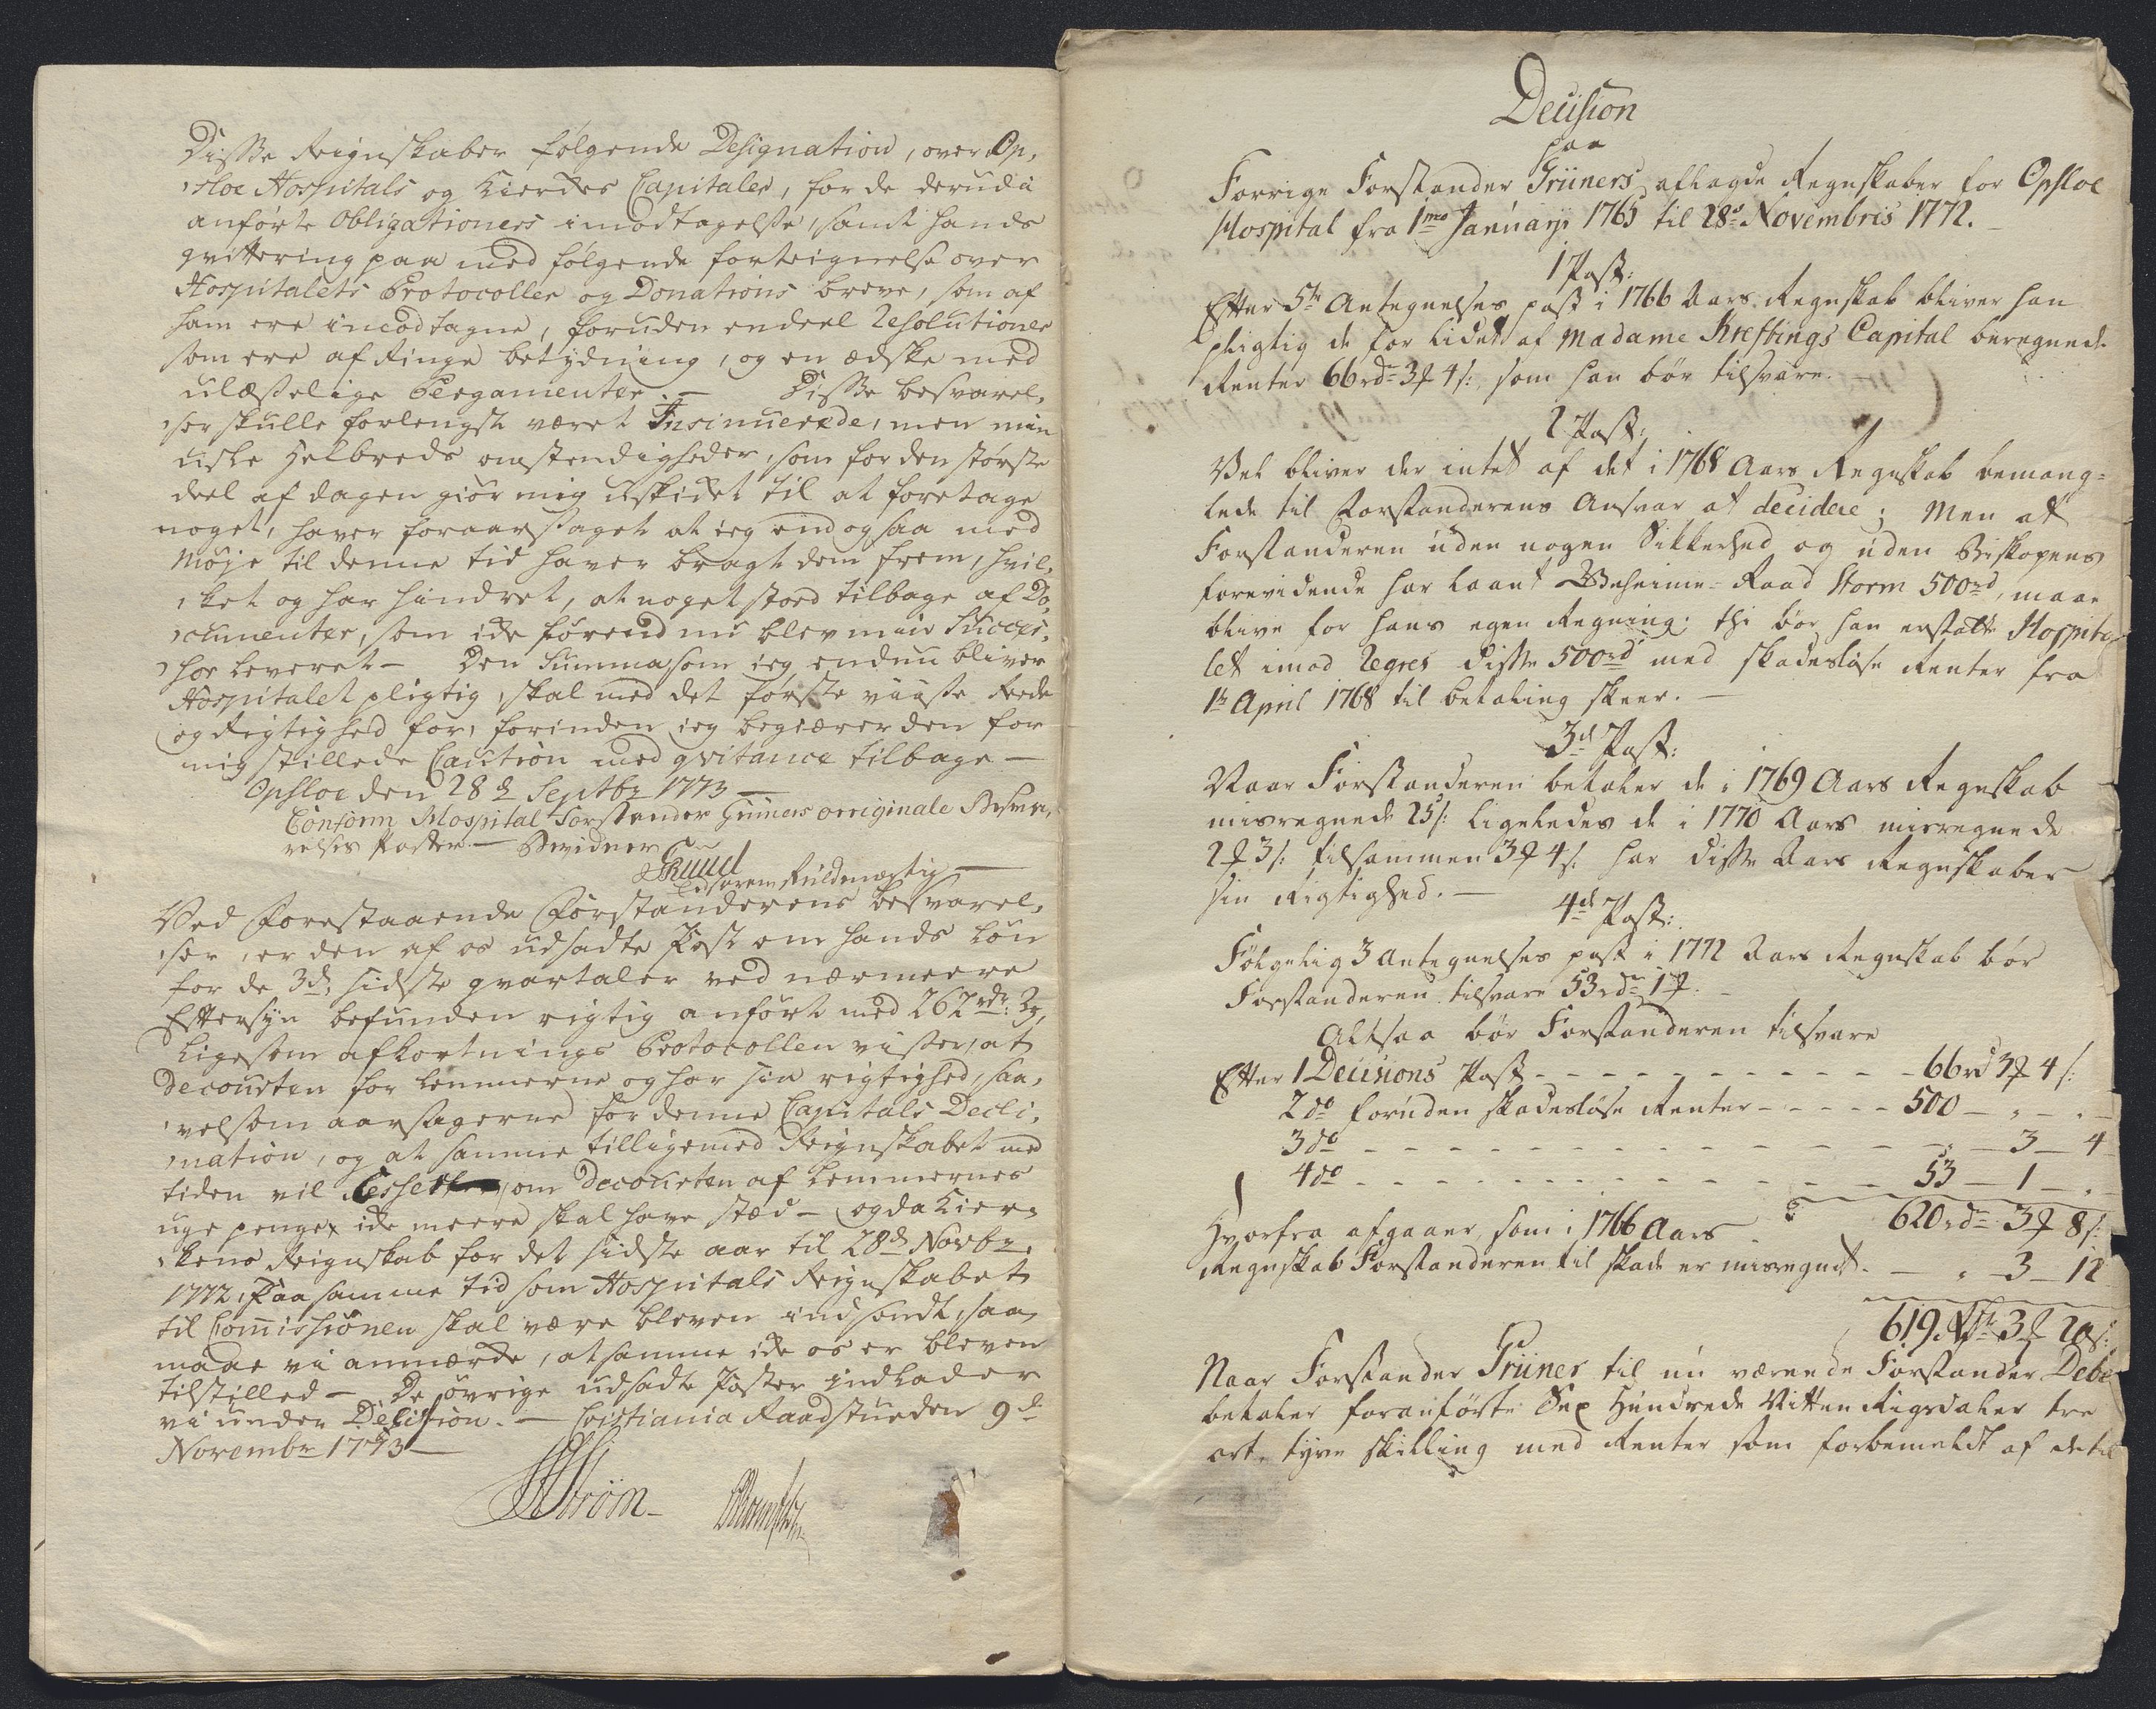 Disse Reignskaber følgende Designation, over Op,
sloe Hospitals og Kierkes Capitaler, for de derudi
anførte Obligationers imodtagelse, samt hands
qvittering paa med følgende forteignelse over
Hospitalets Protocoller og Donations breve, som af
ham ere imodtagne, foruden endeel Resolutioner
som ere af Ringe betydning, og en ædske med
ulæselige Pergamenter. — Disse besvarel,
ser skulle forlengst været Insinuerede, men min
uske Helbreds omstendigheder, som for den største
deel af dagen giør mig uskikket til at foretage
noget, haver foraarsaget at ieg endogsaa med
Møje til denne tid haver bragt dem frem, hvil,
ket og har hindret, at noget stoed tilbage af Do,
cumenter, som ikke førend nu blev min Succes,
sor leveret — Den Summa som ieg endnu bliver
Hospitalet pligtig, skal med det første viise Rede
og Rigtighed for, forinden ieg begiærer den for
mig stillede Caution med qvitance tilbage —
Opsloe den 28de Septbr 1773 —
Conform Hospital Forstander Grüners originale Besva,
relses Poster — Bevidner
Ruud
Fuldmægtig —
Ved Forestaaende Forstanderens besvarel,
ser, er den af os udsadte Post om hands Løn
for de 3de sidste qvartaler ved nærmere
Eftersyn befunden rigtig anført med 262 rdr: 3,
ligesom afkortnings Protocollen viiser, at
decourten for Lemmerne og har sin rigtighed, saa,
velsom aarsagerne for denne Capitals Decli,
nation, og at samme tilligemed Reignskabet med
tiden vil om decourten af Lemmernes
uge penge ikke meere skal have sted — og da Kier,
kens Reignskab for det sidste aar til 28de Novbr.
1772, paa samme tid som Hospitals Reignskabet
til Commissionen skal være bleven indsendt, saa
maae vi anmærke, at samme ikke os er bleven
tilstilled — De øvrige udsadte Poster indlader
vi under Decision. — Cristiania Raadstuen den 9de
Novembr 1773 —
Strøm
Decision
paa
Forrige Forstander Grüners aflagde Regnskaber for Opsloe
Hospital fra 1mo Januarji 1765 til 28de Novembris 1772.
1 Post:
Efter 5te Antegnelses post i 1766 Aars Regnskab bliver han
pligtig de for lidet af Madame Kreftings Capital beregnede
Renter 66 rdr 3 ƒ 4 s: som han bør tilsvare.
2 Post:
Vel bliver der intet af det i 1768 Aars Regnskab bemang=
lede til Forstanderens Ansvar at decidere; Men at
Forstanderen uden nogen Sikkerhed og uden Biskopens
forevidende har laant Geheime-Raad Storm 500 rd, maae
blive for hans egen Regning: thi bør han erstatte Hospita
let imod Regres disse 500 rd med skadesløse Renter fra
1te April 1768 til betaling skeer. —
3de Post:
Naar Forstanderen betaler de i 1769 Aars Regnskab
misregnede 25 s: ligeledes de i 1770 Aars misregnede
2 ƒ 3 s: tilsammen 3 ƒ 4 s: har disse Aars Regnskaber
sin Rigtighed. —
4de Post:
Følgelig 3 Antegnelses post i 1772 Aars Regnskab bør
Forstanderen tilsvare 53 rdr 1 ƒ. —
Altsaa bør Forstanderen tilsvare
Efter 1 Decisions Post - - - 66 rd 3 ƒ 4 s:
2 do foruden skadesløse Renter - - - 500 — " — "
3 do - - - " — 3 — 4
4 do - - - 53 — 1 — "
620 rdr 3 ƒ 8 s:
Hvorfra afgaaer, som i 1766 Aars
Regnskab Forstanderen til skade er misregnet. — " — 3 — 12
619 Rdr 3 ƒ 20 s:
Naar Forstander Grüner til nu værende Forstander Debe
betaler foranførte Sex Hundrede Nitten Rigsdaler tre
ort, tyve skilling med Renter som forbemeldt af de til